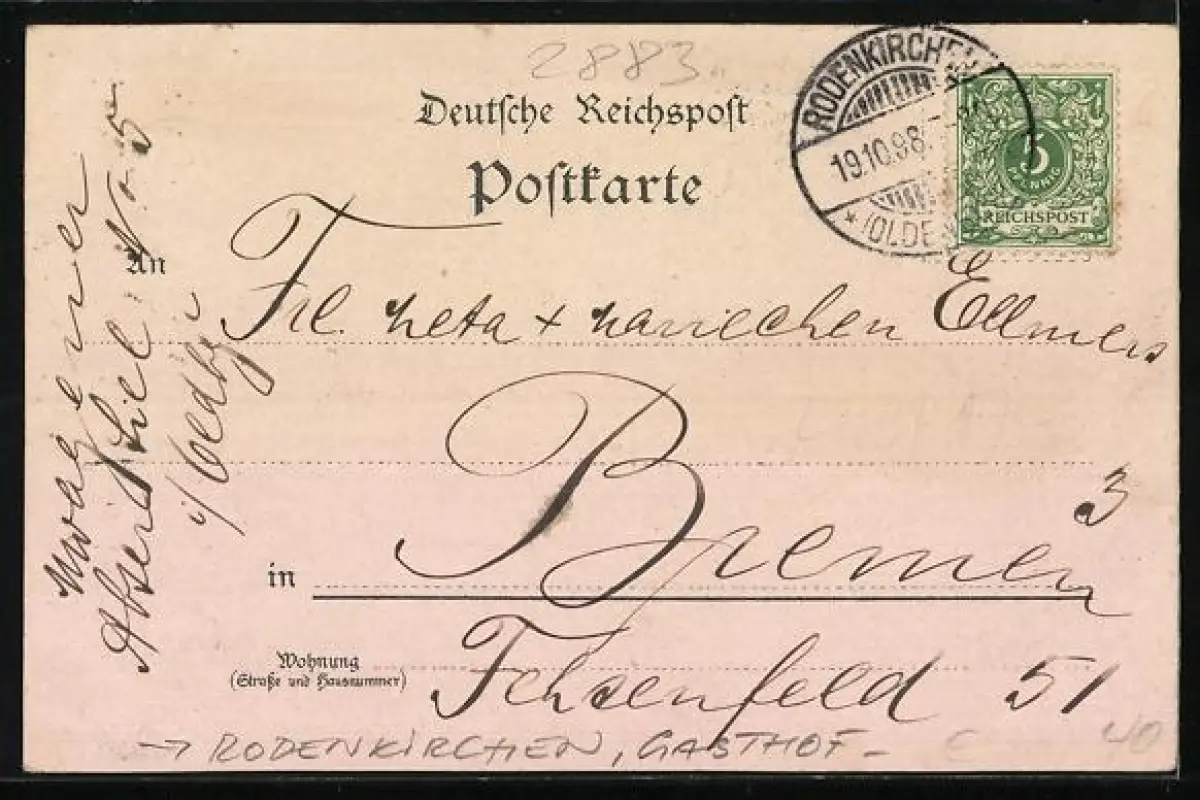 2883
Deutsche Reichspost
Postkarte
RODENKIRCHEN
19.10.98.
* (OLDE
5
PFENNIG
REICHSPOST
An
Frl. Meta + Mariechen Ellmers
3
in Bremen
Wohnung
(Straße und Hausnummer)
Fehsenfeld 51
Absend
No 5
→ RODENKIRCHEN, GASTHOF -
40